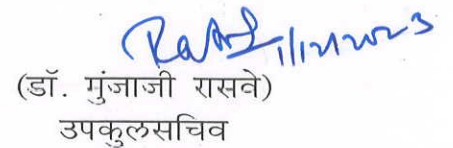 1/12/2023
(डॉ. मुंजाजी रासवे)
उपकुलसचिव